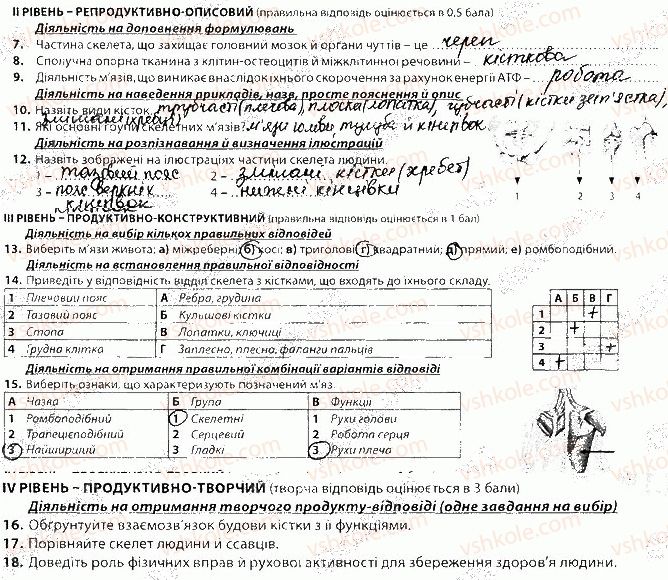 ІІ РІВЕНЬ – РЕПРОДУКТИВНО-ОПИСОВИЙ (правильна відповідь оцінюється в 0,5 бала)
Діяльність на доповнення формулювань
7. Частина скелета, що захищає головний мозок й органи чуттів – це череп
8. Сполучна опорна тканина з клітин-остеоцитів й міжклітинної речовини – кісткова
9. Діяльність м'язів, що виникає внаслідок їхнього скорочення за рахунок енергії АТФ – робота
Діяльність на наведення прикладів, назв, просте пояснення й опис
10. Назвіть види кісток. трубчасті (плечова), плоска (лопатка), губчасті (кістки зап'ястка),
мішані (хребці)
11. Які основні групи скелетних м'язів? м'язи голови, тулуба й кінцівок
Діяльність на розпізнавання й визначення ілюстрацій
12. Назвіть зображені на ілюстраціях частини скелета людини.
1 – тазовий пояс 2 – змішані кістки (хребет)
3 – пояс верхніх 4 – нижні кінцівки
кінцівок
1 2 3 4
ІІІ РІВЕНЬ – ПРОДУКТИВНО-КОНСТРУКТИВНИЙ (правильна відповідь оцінюється в 1 бал)
Діяльність на вибір кількох правильних відповідей
13. Виберіть м'язи живота: а) міжреберні; б) косі; в) триголові; г) квадратний; д) прямі; е) ромбоподібний.
Діяльність на встановлення правильної відповідності
14. Приведіть у відповідність відділ скелета з кістками, що входять до їхнього складу.
1 Плечовий пояс А Ребра, грудина
2 Тазовий пояс Б Кульшові кістки
3 Стопа В Лопатки, ключиці
4 Грудна клітка Г Заплесно, плесно, фаланги пальців
А Б В Г
1 +
2 +
3 +
4 +
Діяльність на отримання правильної комбінації варіантів відповіді
15. Виберіть ознаки, що характеризують позначений м'яз.
А Назва Б Група В Функції
1 Ромбоподібний 1 Скелетні 1 Рухи голови
2 Трапецієподібний 2 Серцевий 2 Робота серця
3 Найширший 3 Гладкі 3 Рухи плеча
IV РІВЕНЬ – ПРОДУКТИВНО-ТВОРЧИЙ (творча відповідь оцінюється в 3 бали)
Діяльність на отримання творчого продукту-відповіді (одне завдання на вибір)
16. Обґрунтуйте взаємозв'язок будови кістки з її функціями.
17. Порівняйте скелет людини й ссавців.
18. Доведіть роль фізичних вправ й рухової активності для збереження здоров'я людини.